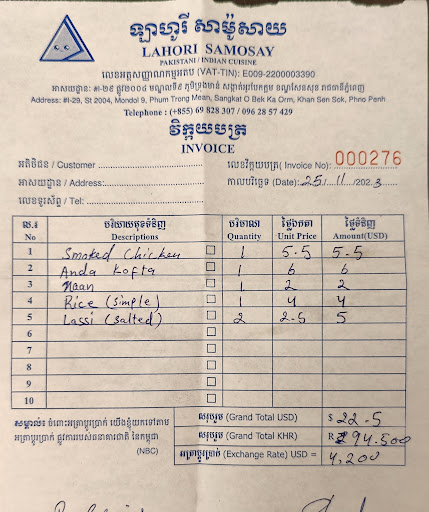 ឡាហូរី សាម៉ូសាយ
LAHORI SAMOSAY
PAKISTANI / INDIAN CUISINE
លេខអត្តសញ្ញាណកម្មអតប (VAT-TIN): E009-2200003390
អាសយដ្ឋាន: #I-29 ផ្លូវ២០០៤ មណ្ឌលទី៩ ភូមិទ្រុងមាន់ សង្កាត់អូរបែកក្អម ខណ្ឌសែនសុខ រាជធានីភ្នំពេញ
Address: #I-29, St 2004, Mondol 9, Phum Trong Mean, Sangkat O Bek Ka Orm, Khan Sen Sok, Phno Penh
Telephone : (+855) 69 828 307 / 096 28 57 429
វិក្កយបត្រ
INVOICE
អតិថិជន / Customer
លេខវិក្កយបត្រ( Invoice No): 000276
អាសយដ្ឋាន / Address:
កាលបរិច្ឆេទ (Date): 25/11/2023
លេខទូរស័ព្ទ / Tel:
ល.រ បរិយាយមុខទំនិញ បរិមាណ ថ្លៃឯកតា ថ្លៃទំនិញ
No Descriptions Quantity Unit Price Amount(USD)
1 Smoked Chicken 1 5.5 5.5
2 Anda Kofta 1 6 6
3 Naan 1 2 2
4 Rice (simple) 1 4 4
5 Lassi (salted) 2 2.5 5
6
7
8
9
10
សម្គាល់: ចំពោះអត្រាប្តូរប្រាក់ យើងខ្ញុំយកទៅតាម
អត្រាប្តូរប្រាក់ ផ្លូវការរបស់ធនាគារជាតិ នៃកម្ពុជា
(NBC)
សរុបរួម (Grand Total USD) $ 22.5
សរុបរួម (Grand Total KHR) R 94.500
អត្រាប្តូរប្រាក់ (Exchange Rate) USD = 4,200